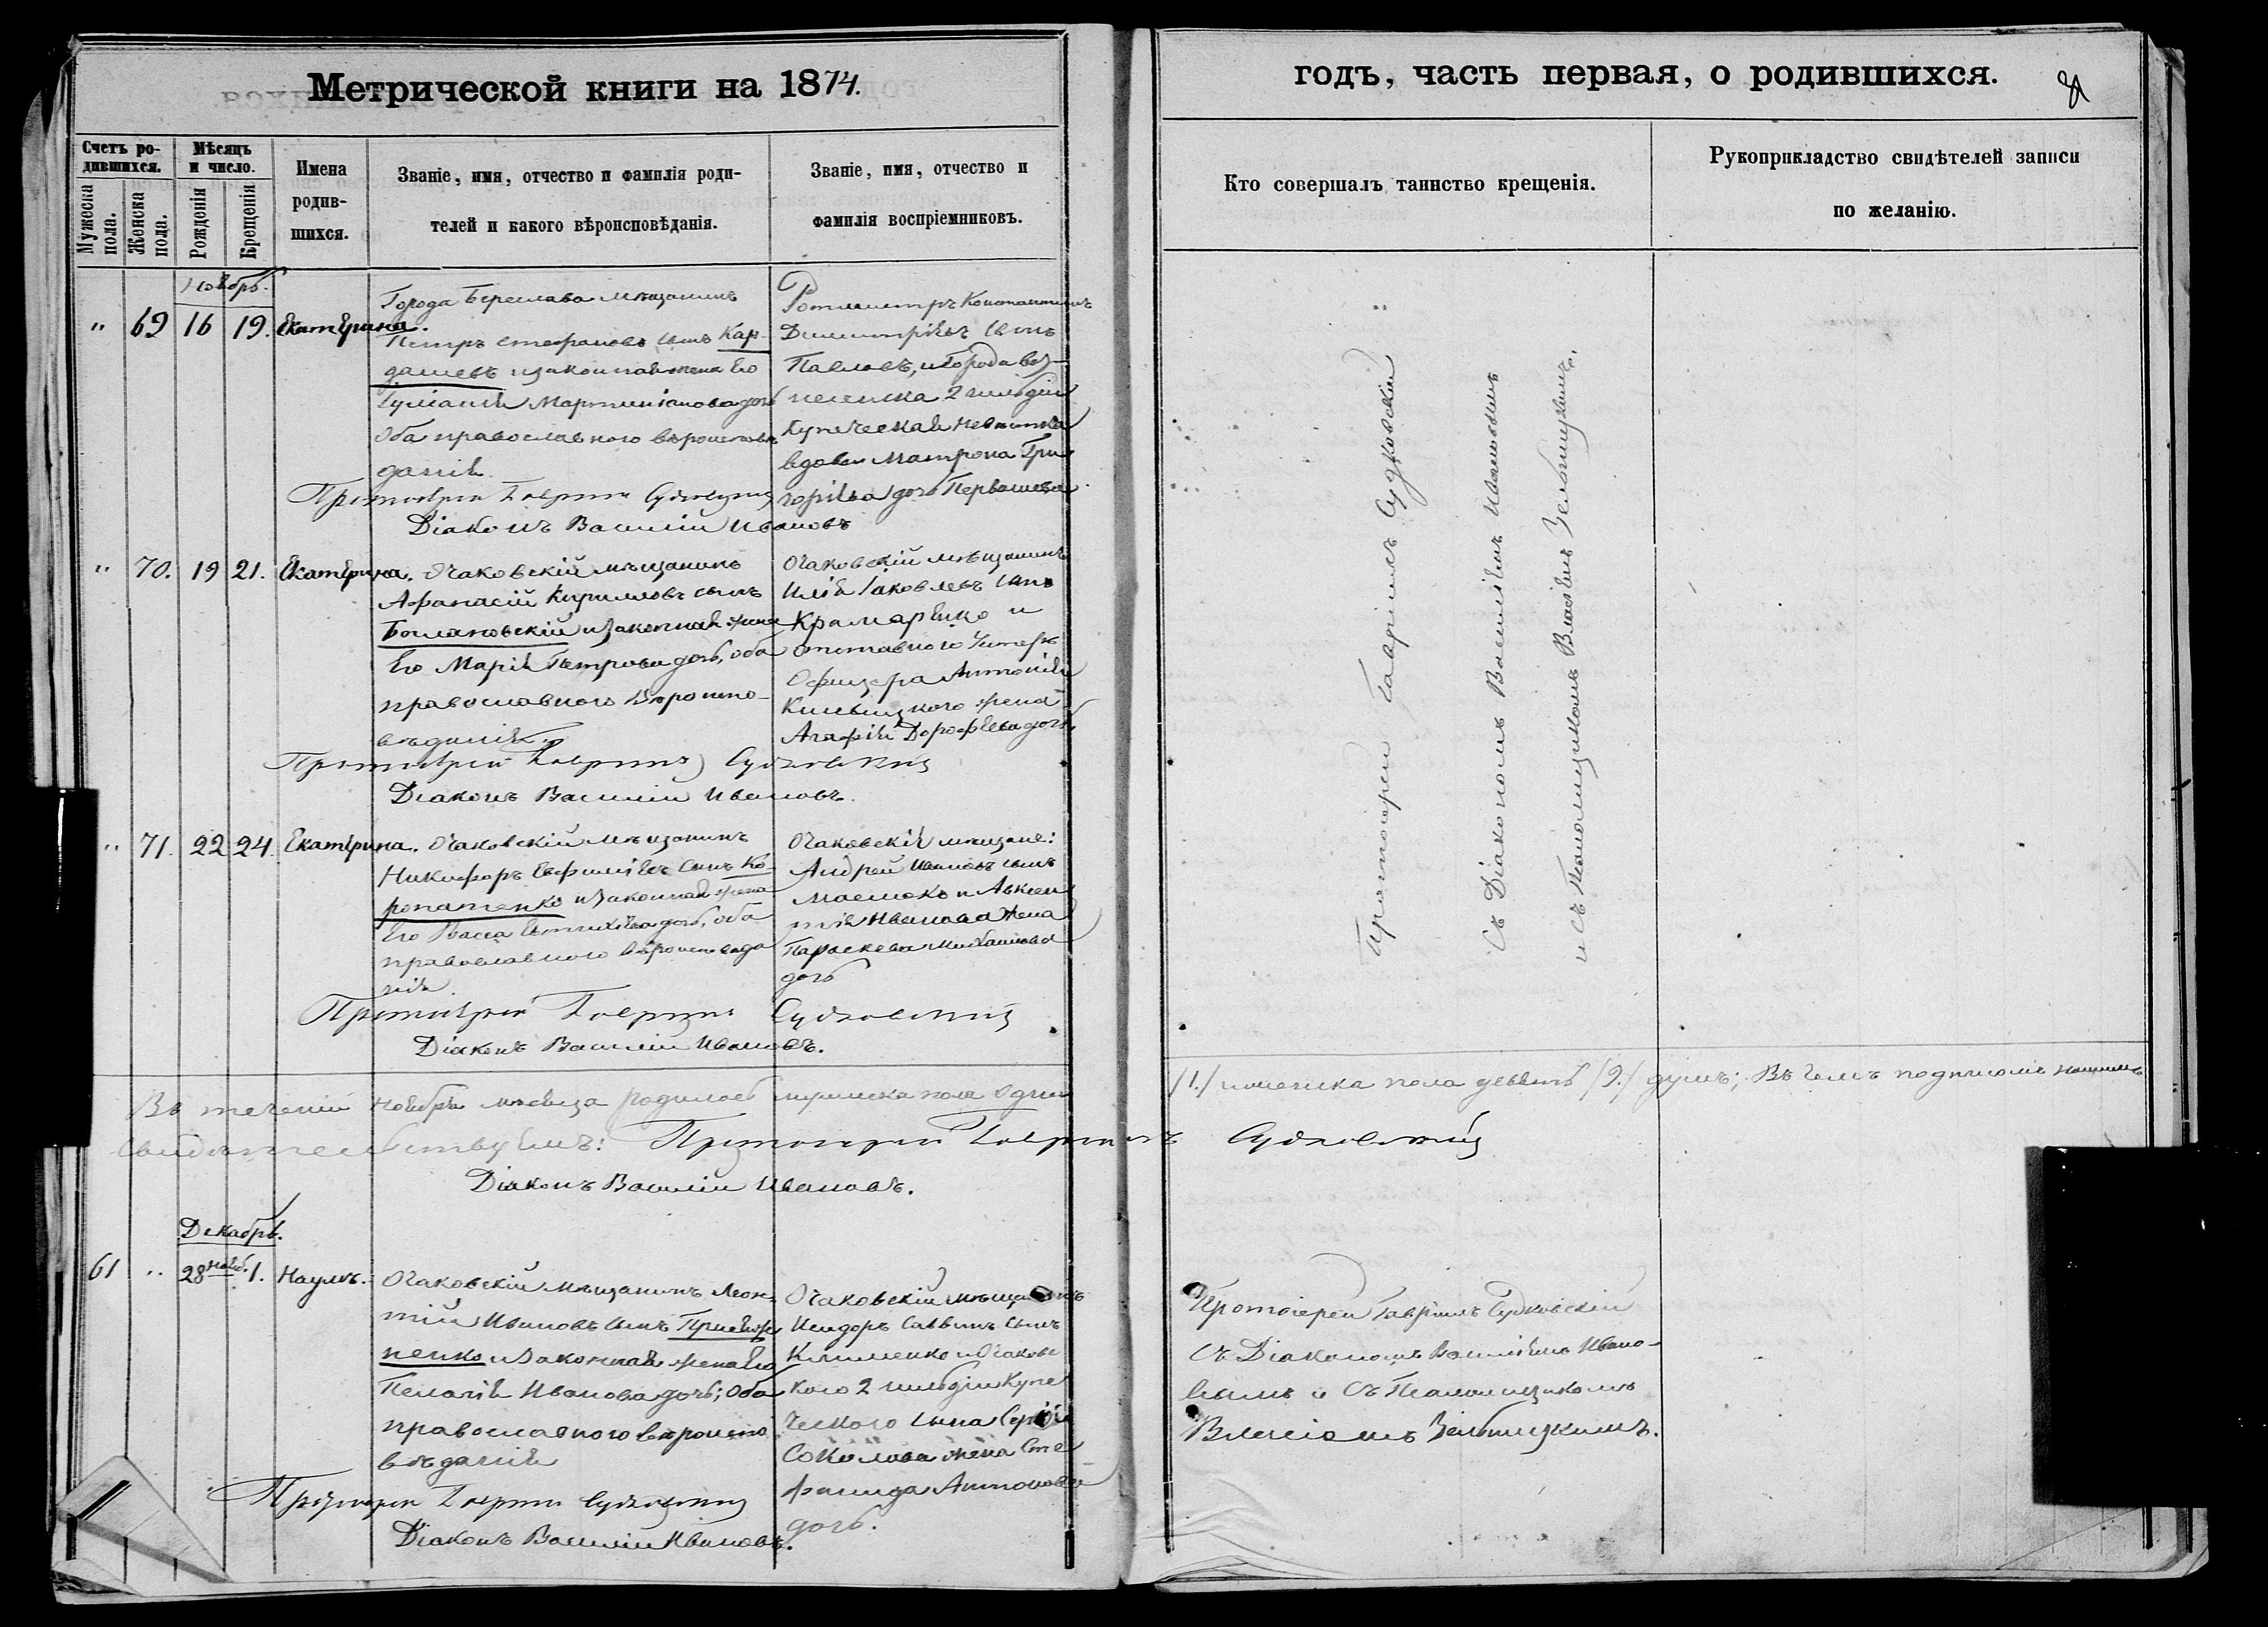 Метрической книги на 1874.
годъ, часть первая, о родившихся.
Счетъ ро-
дившихся.
Мужеска
пола.
Женска
пола.
Мѣсяцъ
и число.
Рожденія
Крещенія.
Имена
родив-
шихся.
Званіе, имя, отчество и фамилія роди-
телей и какого вѣроисповѣданія.
Званіе, имя, отчество и
фамилія воспріемниковъ.
Кто совершалъ таинство крещенія.
Рукоприкладство свидѣтелей записи
по желанію.
Ноябрь.
" 69 16 19. Екатерина.
Города Береслава мѣщанинъ
Петръ Стефановъ сынъ Кар-
дашевъ и законная жена его
Мартиніанова дочь
оба православного вѣроисповѣ
данія.
Ротмистръ Константинъ
Димитріевъ сынъ
Павловъ, и города Воз-
несенска 2 гильдіи
купеческая невѣстка
вдова Матрона Гри
горіева дочь Первашева
Протоіерей Гавріилъ Судковскій
Діаконъ Василій Ивановъ
" 70. 19 21. Екатерина.
Очаковскій мѣщанинъ
Афанасій Кирилловъ сынъ
и законная жена
его Марія Петрова дочь, оба
православного вѣроиспо-
вѣданія
Очаковскій мѣщанинъ
Илія Іаковлевъ сынъ
Крамаренко и
отставного унтеръ
офицера Антонія
жена
Агафія Дорофѣева дочь
Протоіерей Гавріилъ Судковскій
Діаконъ Василій Ивановъ.
" 71. 22 24. Екатерина.
Очаковскій мѣщанинъ
Никифоръ Евфиміевъ сынъ Ко-
ропатенко и законная жена
его Васса Евтихіева дочь, оба
православного вѣроисповѣда
нія.
Очаковскія мѣщане:
Андрей Ивановъ сынъ
и Авксен
тія Иванова жена
Параскева Михаилова
дочь
Протоіерей Гавріилъ Судковскій
Діаконъ Василій Ивановъ.
Протоіерей Гавріилъ Судковскій
Съ Діакономъ Василіемъ Ивановымъ
и съ Псаломщикомъ Власіемъ Зелбницкимъ.
Въ теченіи Ноября мѣсяца родилось мужеска пола одинъ
/1./ и женска пола девять /9./ душъ; въ чемъ подписомъ нашимъ
свидѣтельствуемъ: Протоіерей Гавріилъ Судковскій
Діаконъ Василій Ивановъ.
Декабрь.
61 " 28 Нояб. 1. Наумъ.
Очаковскій мѣщанинъ Леон-
тій Ивановъ сынъ
ненко и законная жена его
Пелагія Иванова дочь; оба
православного вѣроиспо
вѣданія
Очаковскій мѣщанинъ
Исидоръ Саввинъ сынъ
Клименко и Очаковс
кого 2 гильдіи купе
ческого сына Сергія
Соколова жена Сте
фанида Антонова
дочь.
Протоіерей Гавріилъ Судковскій
съ Діакономъ Василіемъ Ивано-
вымъ и съ Псаломщикомъ
Власіемъ Зелбницкимъ.
Протоіерей Гавріилъ Судковскій
Діаконъ Василій Ивановъ.